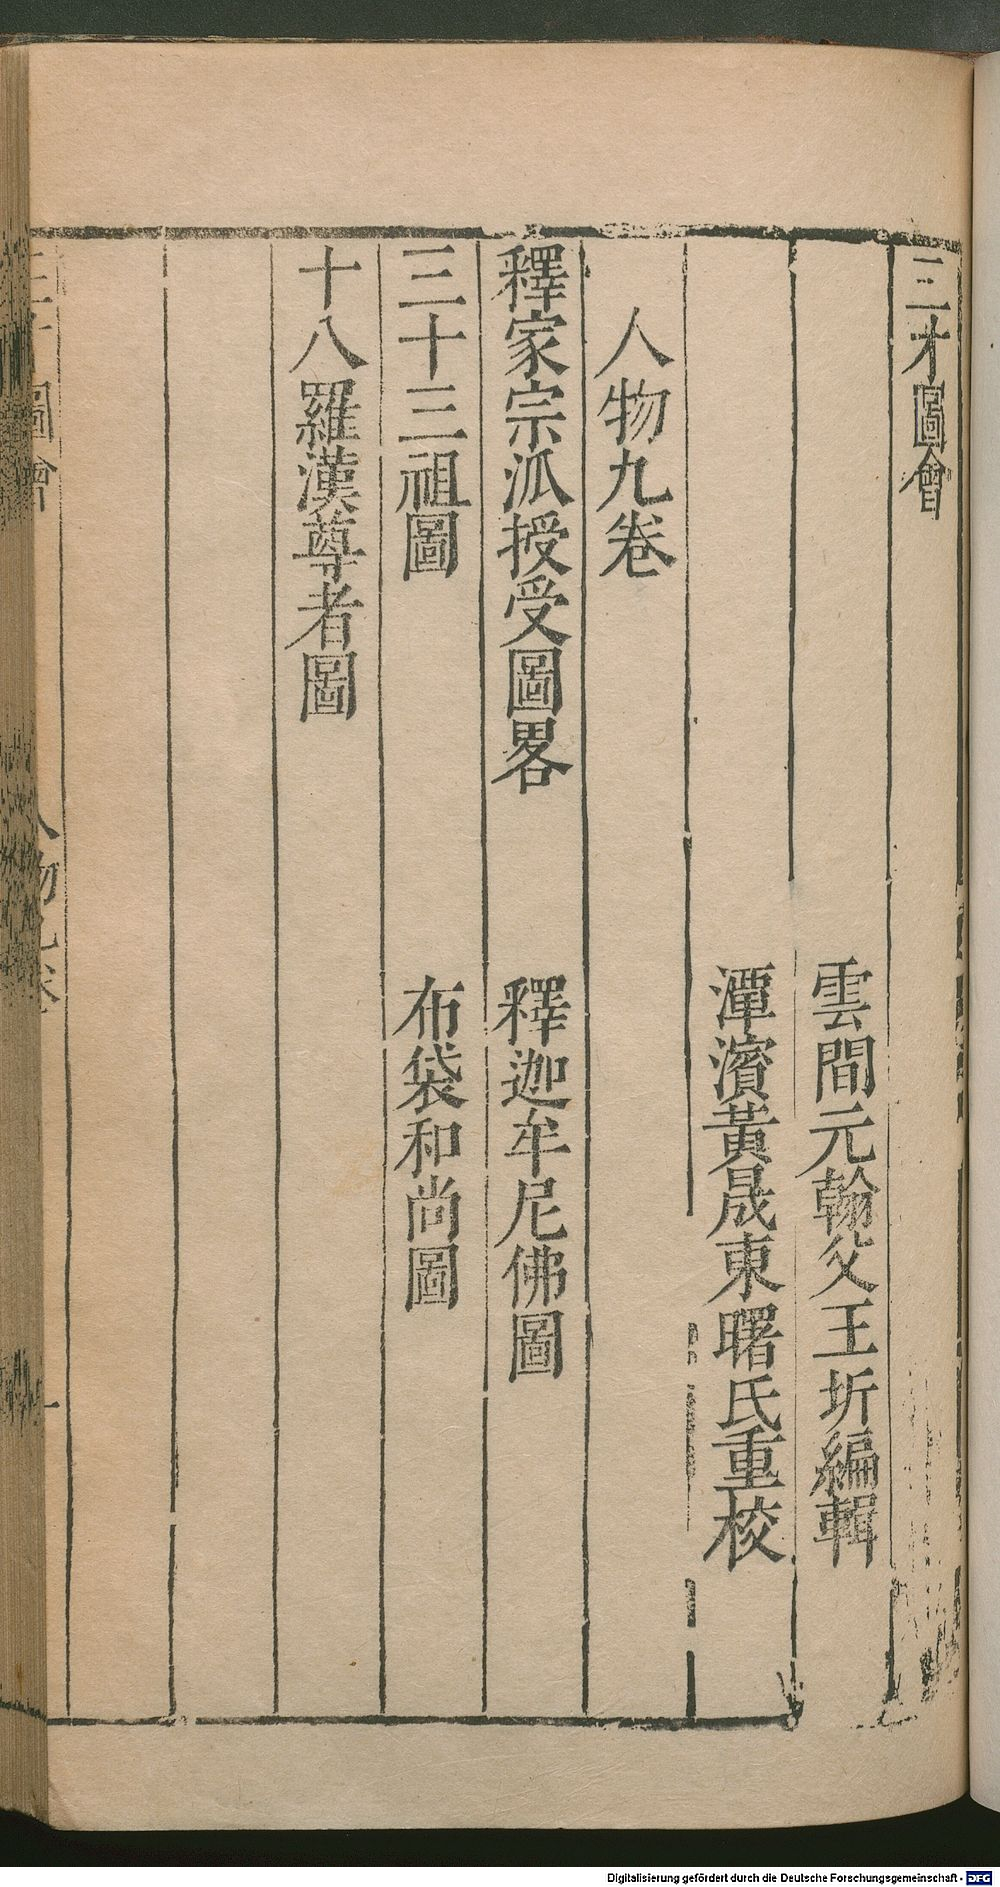 三才圖會
雲間元翰父王圻編輯
潭濱黃晟東曙氏重校
人物九卷
釋家宗派授受圖畧
釋迦牟尼佛圖
三十三祖圖
布袋和尚圖
十八羅漢尊者圖
圖會
Digitalisierung gefördert durch die Deutsche Forschungsgemeinschaft - DFG